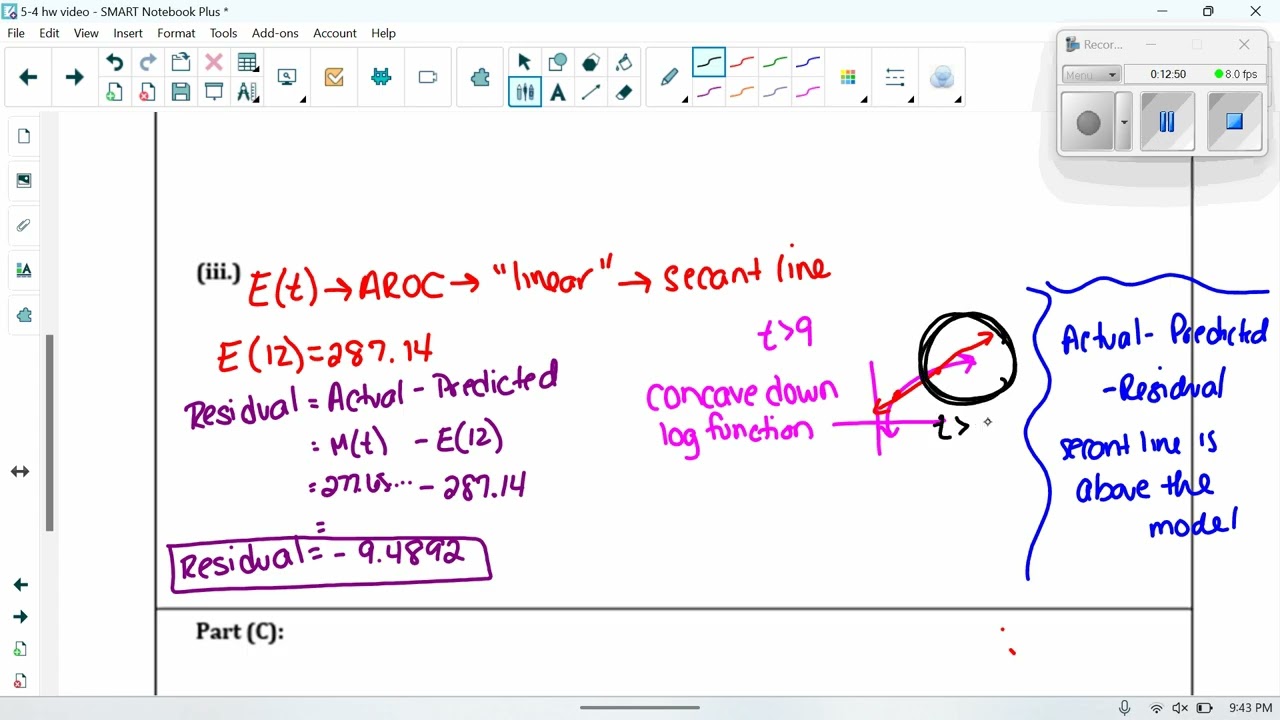 5-4 hw video - SMART Notebook Plus *
File Edit View Insert Format Tools Add-ons Account Help
Recor...
Menu
0:12:50
8.0 fps
(iii.) E(t) → AROC → "linear" → secant line
E(12) = 287.14
Residual = Actual - Predicted
= M(t) - E(12)
= 277.65... - 287.14
=
Residual = - 9.4892
t>9
concave down
log function
t>
Actual - Predicted
-Residual
secant line is
above the
model
Part (C):
9:43 PM